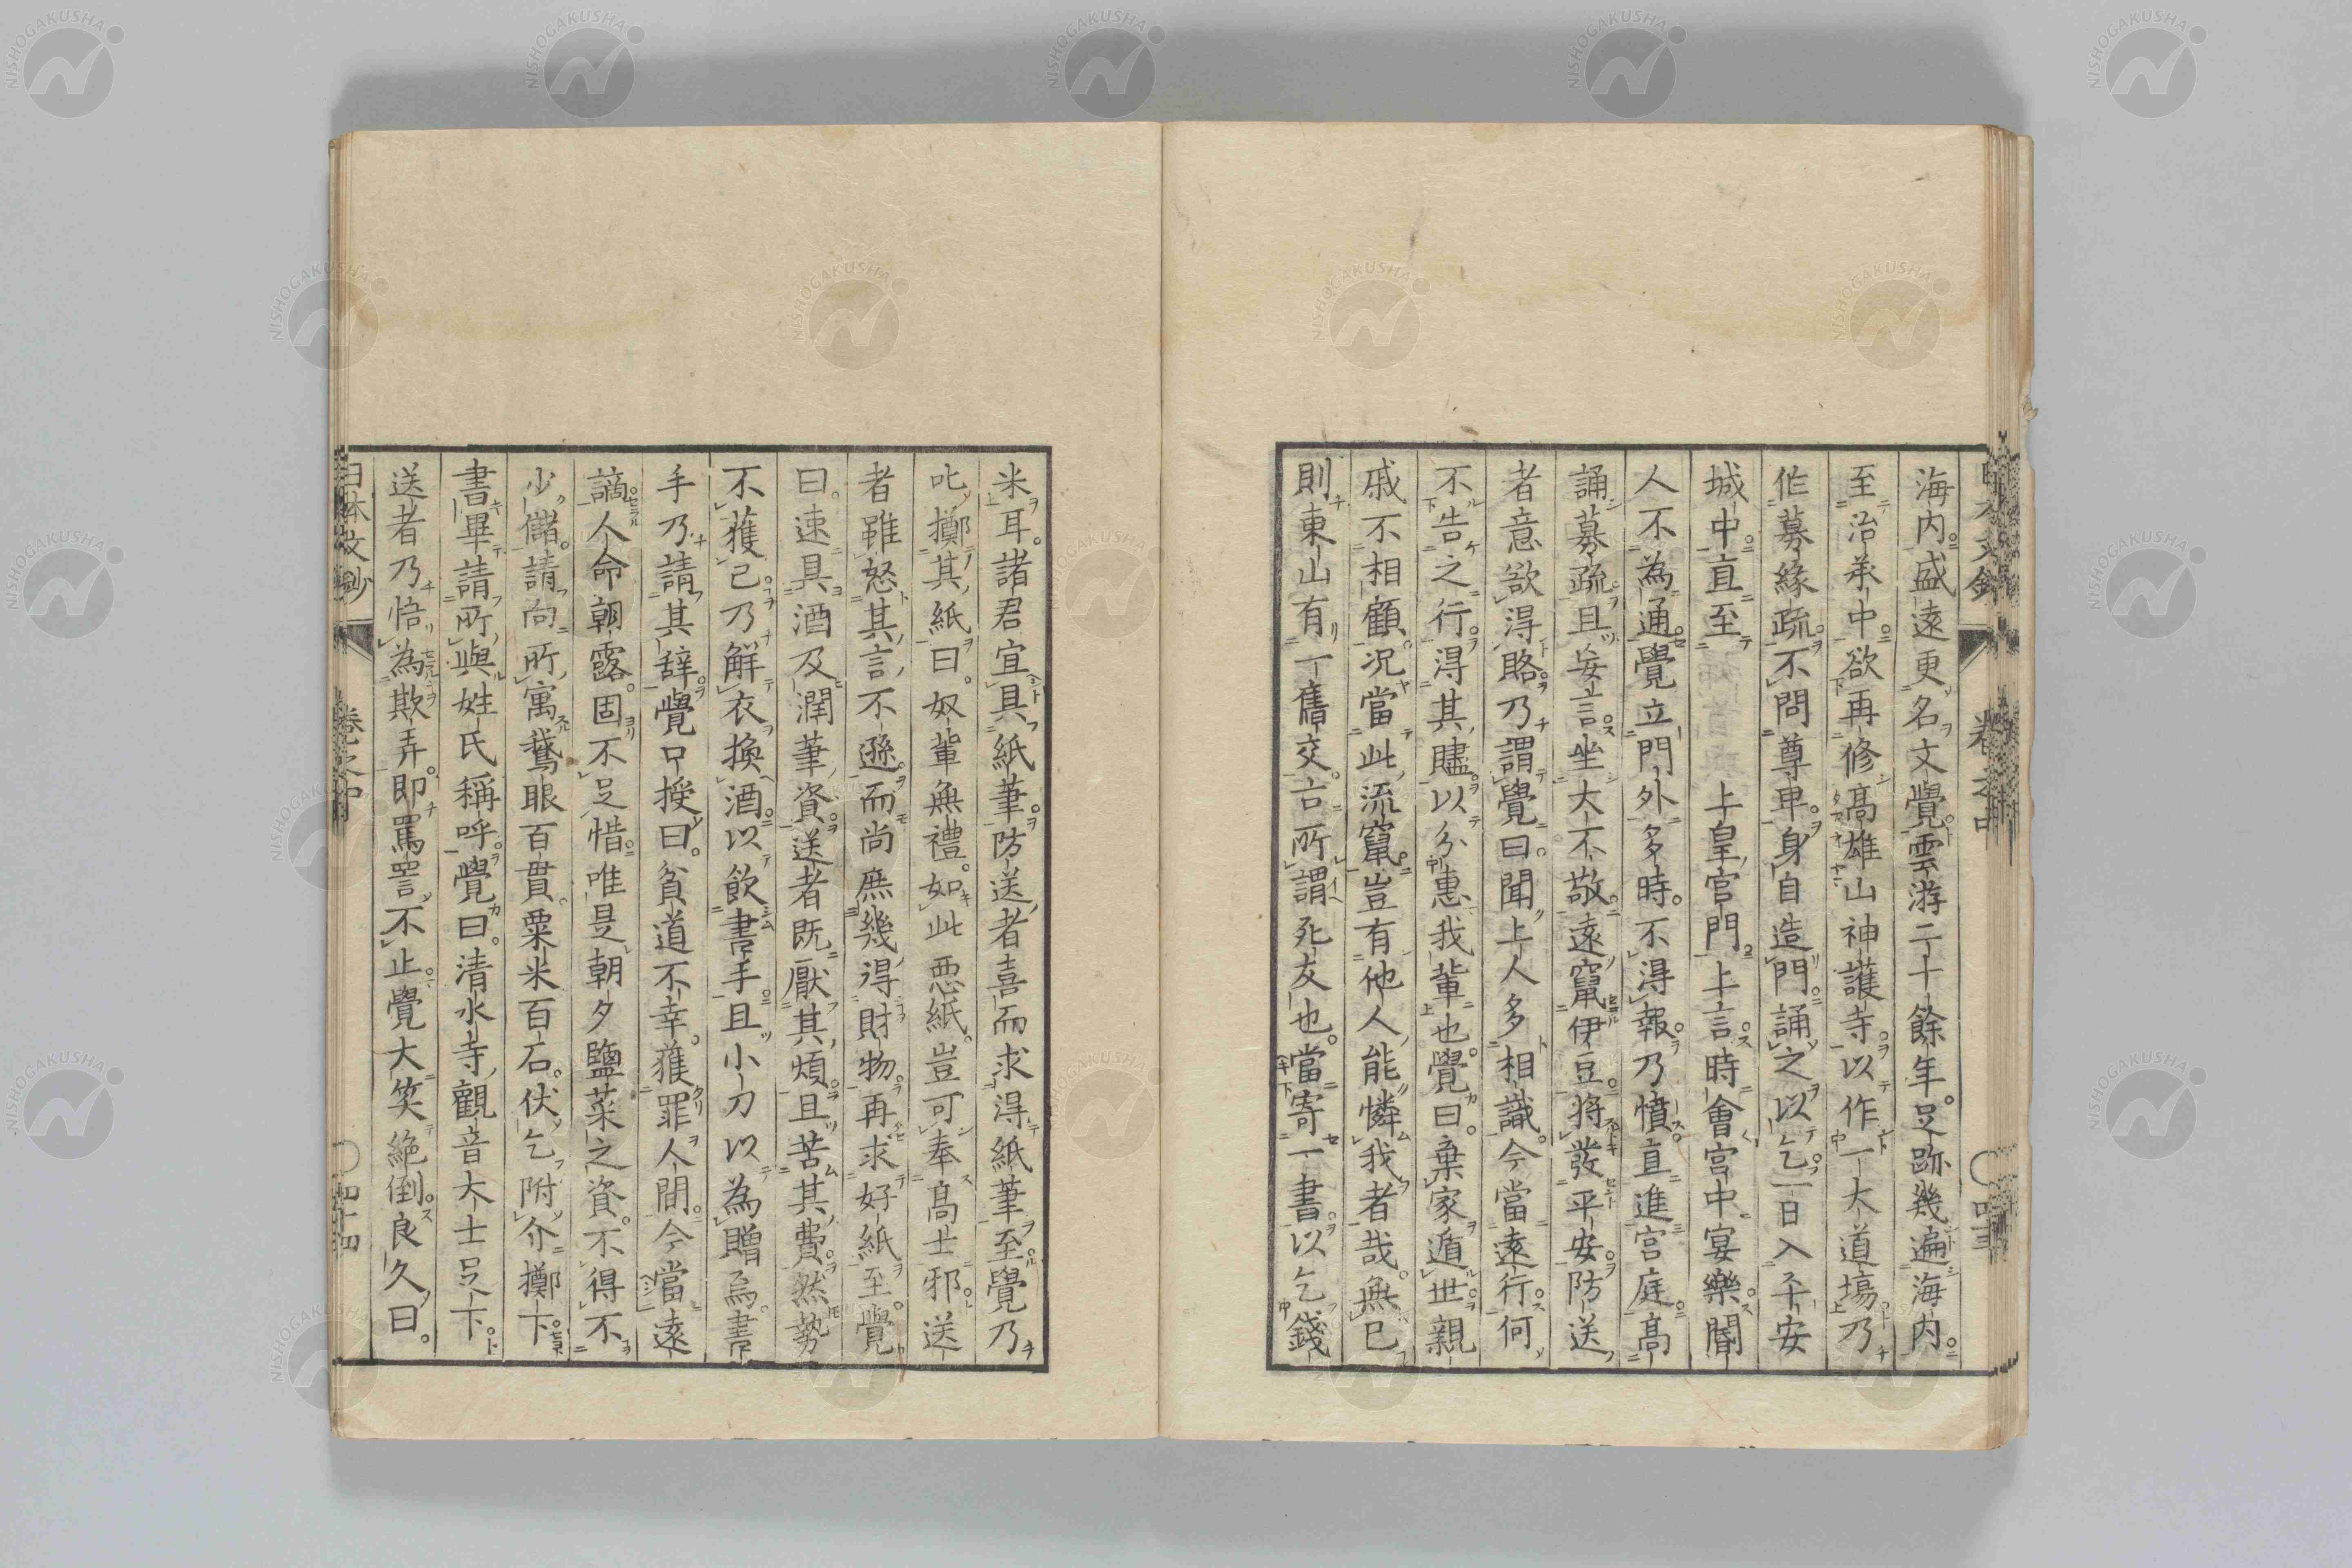 海内盛遠更名文覺雲游二十餘年。足跡幾遍海内。
至治承中欲再修高雄山神護寺。以作一大道塲乃
作募緣疏。不問尊卑身自造門誦之以乞一日入平安
城中直至 上皇宮門上言時會宮中宴樂閽
人不為通覺立門外多時。不得報乃憤直進宮庭高
誦募疏且妄言坐大不敬遠竄伊豆将發平安防送
者意欲得賂乃謂覺曰聞上人多相識。今當遠行何
不告之行得其贐以分惠我輩也。覺曰。棄家遁世親
戚不相顧況當此流竄豈有他人能憐我者哉。無已
則東山有一舊交。所謂死友也。當寄一書以乞錢
米耳。諸君宜具紙筆防送者喜而求得紙筆至覺乃
叱擲其紙曰。奴輩無禮。如此悪紙。豈可奉高士邪送
者雖怒其言不遜而尚庶幾得財物再求好紙至覺
曰。速具酒及潤筆資送者既厭其煩且苦其費然勢
不獲已乃解衣換酒以飲書手且小刀以為贈焉書
手乃請其辞覺口授曰。貧道不幸。獲罪人間今當遠
謫人命朝露。固不足惜。唯是朝夕鹽菜之資。不得不
少儲。請向所寓鵞眼百貫。粟米百石。伏乞附介擲下
書畢請所與姓氏稱呼覺曰。清水寺觀音大士足下。
送者乃悟為欺弄。即罵詈不止覺大笑絶倒良久曰。
日本文鈔 卷之中 四十四